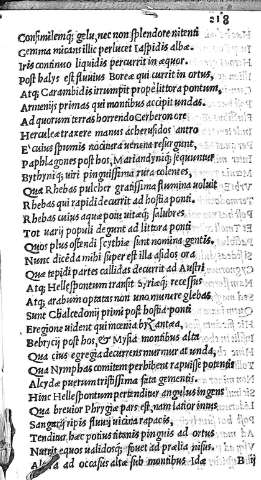 218
Consimilemq; gelu, nec non splendore nitenti
Gemma micans illic perlucet Iaspidis albæ.
Iris continuo liquidis percurrit in æquor.
Post halys est fluuius Boreæ qui currit in ortus,
Atq; Carambidis irrumpit prope littora pontum,
Armenijs primas qui montibus accipit undas.
Ad quorum terras horrendo Cerberon ore
Herculeæ traxere manus acherusidos antro
E cuius spumis nocitura uenena resurgunt,
Paphlagones post hos, Mariandyniq; sequuntur
Bythyniq; uiri pinguissima rura colentes,
Qua Rhebas pulcher gratissima flumina uoluit
Rhebas qui rapidi decurrit ad hostia ponti.
Rhebas cuius aquæ potu uitaq; salubres
Tot uarij populi degunt ad littora ponti
Quos plus ostendi scythiæ sunt nomina gentis.
Nunc dicenda mihi super est illa asidos ora
Qua tepidi partes callidas decurrit ad Austri
Atq; Hellespontum transit Syriæq; recessus
Atq; arabum optatas non uno munere glebas.
Sunt Chalcedonij primi post hostia ponti
E regione uident qui mœnia
Bebrycij post hos, & Mysia montibus alta
Qua cius egregia decurrens murmurat unda,
Qua Nymphas comitem perhibent rapuisse potentis
Alcydæ puerum tristissima fata gementis.
Hinc Hellespontum pertenditur angulus ingens
Qua breuior Phrygia pars est, nam latior intus
Sangarij ripis fluuij uicina rapacis,
Tenditur, hæc potius titanis pinguis ad ortus
Nutrit equos ualidosq; fouet ad prælia nisus.
ad occasus altæ sub montibus Idæ
B iij